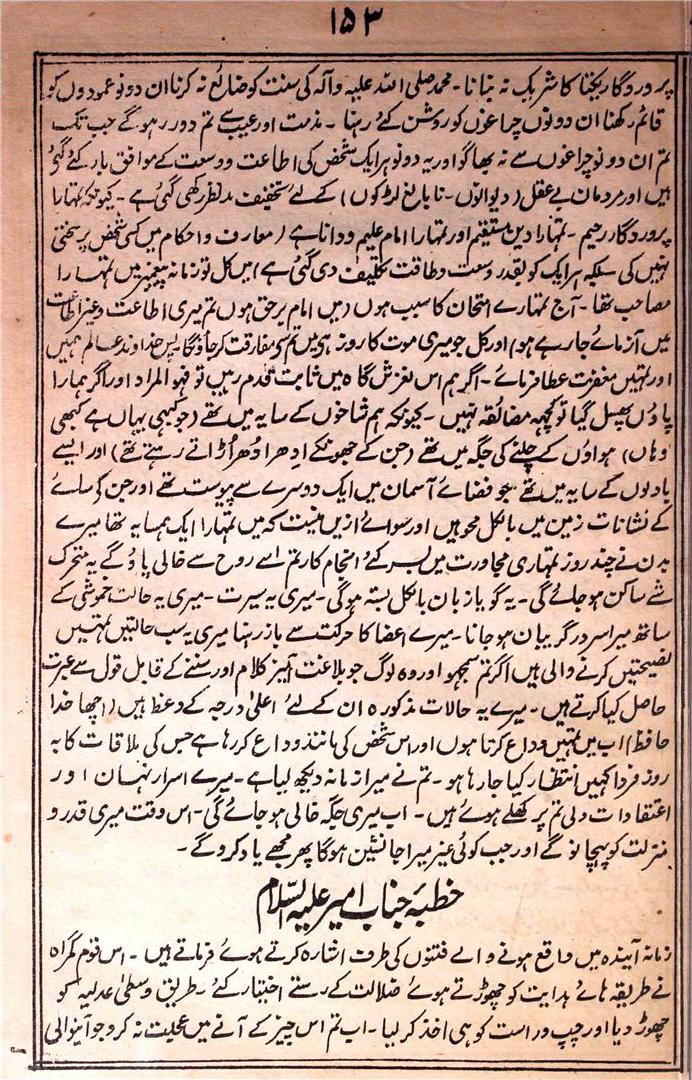 ۱۵۳
پروردگار یکتا کا شریک نہ بنانا۔ محمد صلی اللہ علیہ وآلہ کی سنت کو ضائع نہ کرنا ان دونو عمودوں کو
قائم رکھنا ان دونوں چراغوں کو روشن کئے رہنا۔ مذمت اور عیب سے تم دور رہو گے جب تک
تم ان دونو چراغوں سے نہ بھاگو اور یہ دونو ہر ایک شخص کی اطاعت و وسعت کے موافق بار کئے گئی
ہیں اور مردمان بے عقل (دیوانوں۔ نابالغ لڑکوں) کے لئے تخفیف مدنظر رکھی گئی ہے۔ کیونکہ تمہارا
پروردگار رحیم۔ تمہارا دین مستقیم اور تمہارا امام علیم و دانا ہے (معارف و احکام میں کسی شخص پر سختی
نہیں کی بلکہ ہر ایک کو بقدر وسعت و طاقت تکلیف دی گئی ہے) میں کل تو زمانہ پیغمبر میں تمہارا
مصاحب تھا۔ آج تمہارے امتحان کا سبب ہوں (میں امام برحق ہوں تم میری اطاعت وغیر اطاعت
میں آزمائے جا رہے ہو) اور کل جو میری موت کا روز ہے میں تم سے مفارقت کر جاؤنگا پس خداوند عالم ہمیں
اور تمہیں مغفرت عطا فرمائے۔ اگر ہم اس لغزش گاہ میں ثابت قدم رہیں تو فہو المراد اور اگر ہمارا
پاؤں پھسل گیا تو کچھ مضائقہ نہیں۔ کیونکہ ہم شاخوں کے سایہ میں تھے (جو کبھی یہاں ہے کبھی
وہاں) ہواؤں کے چلنے کی جگہ میں تھے (جن کے جھونکے ادھر ادھر اڑاتے رہتے تھے) اور ایسے
بادلوں کے سایہ میں تھے جو فضائے آسمان میں ایک دوسرے سے پیوست تھے اور جن کی سائے
کے نشانات زمین میں بالکل محو ہیں اور سوائے ازیں نیست کہ میں تمہارا ایک ہمسایہ تھا میرے
بدن نے چند روز تمہاری مجاورت میں بسر کئے انجام کار تم اسے روح سے خالی پاؤ گے یہ متحرک
شے ساکن ہو جائے گی۔ یہ گویا زبان بالکل بستہ ہو گی۔ میری یہ سیرت۔ میری یہ حالت خموشی کے
ساتھ میرا سر در گریبان ہو جانا۔ میرے اعضا کا حرکت سے باز رہنا میری یہ سب حالتیں تمہیں
نصیحتیں کرنے والی ہیں اگر تم سمجھو اور وہ لوگ جو بلاغت آمیز کلام اور سننے کے قابل قول سے عبرت
حاصل کیا کرتے ہیں۔ میرے یہ حالات مذکورہ ان کے لئے اعلیٰ درجہ کے وعظ ہیں (اچھا خدا
حافظ) اب میں تمہیں وداع کرتا ہوں اور اس شخص کی مانند وداع کر رہا ہے جس کی ملاقات کا بہ
روز فردا کہیں انتظار کیا جا رہا ہو۔ تم نے میرا زمانہ دیکھ لیا ہے۔ میرے اسرار نہان اور
اعتقادات دلی تم پر کھلے ہوئے ہیں۔ اب میری جگہ خالی ہو جائے گی۔ اس وقت میری قدر و
منزلت کو پہچانو گے اور جب کوئی غیر میرا جانشین ہوگا پھر مجھے یاد کرو گے۔
خطبۂ جناب امیر علیہ السّلام
زمانہ آیندہ میں واقع ہونے والے فتنوں کی طرف اشارہ کرتے ہوئے فرماتے ہیں۔ اس قوم گمراہ
نے طریقہ ہائے ہدایت کو چھوڑتے ہوئے ضلالت کے رستے اختیار کئے۔ طریق وسطیٰ عدلیہ کو
چھوڑ دیا اور چپ و راست کو ہی اخذ کر لیا۔ اب تم اس چیز کے آنے میں عجلت نہ کرو جو آنیوالی